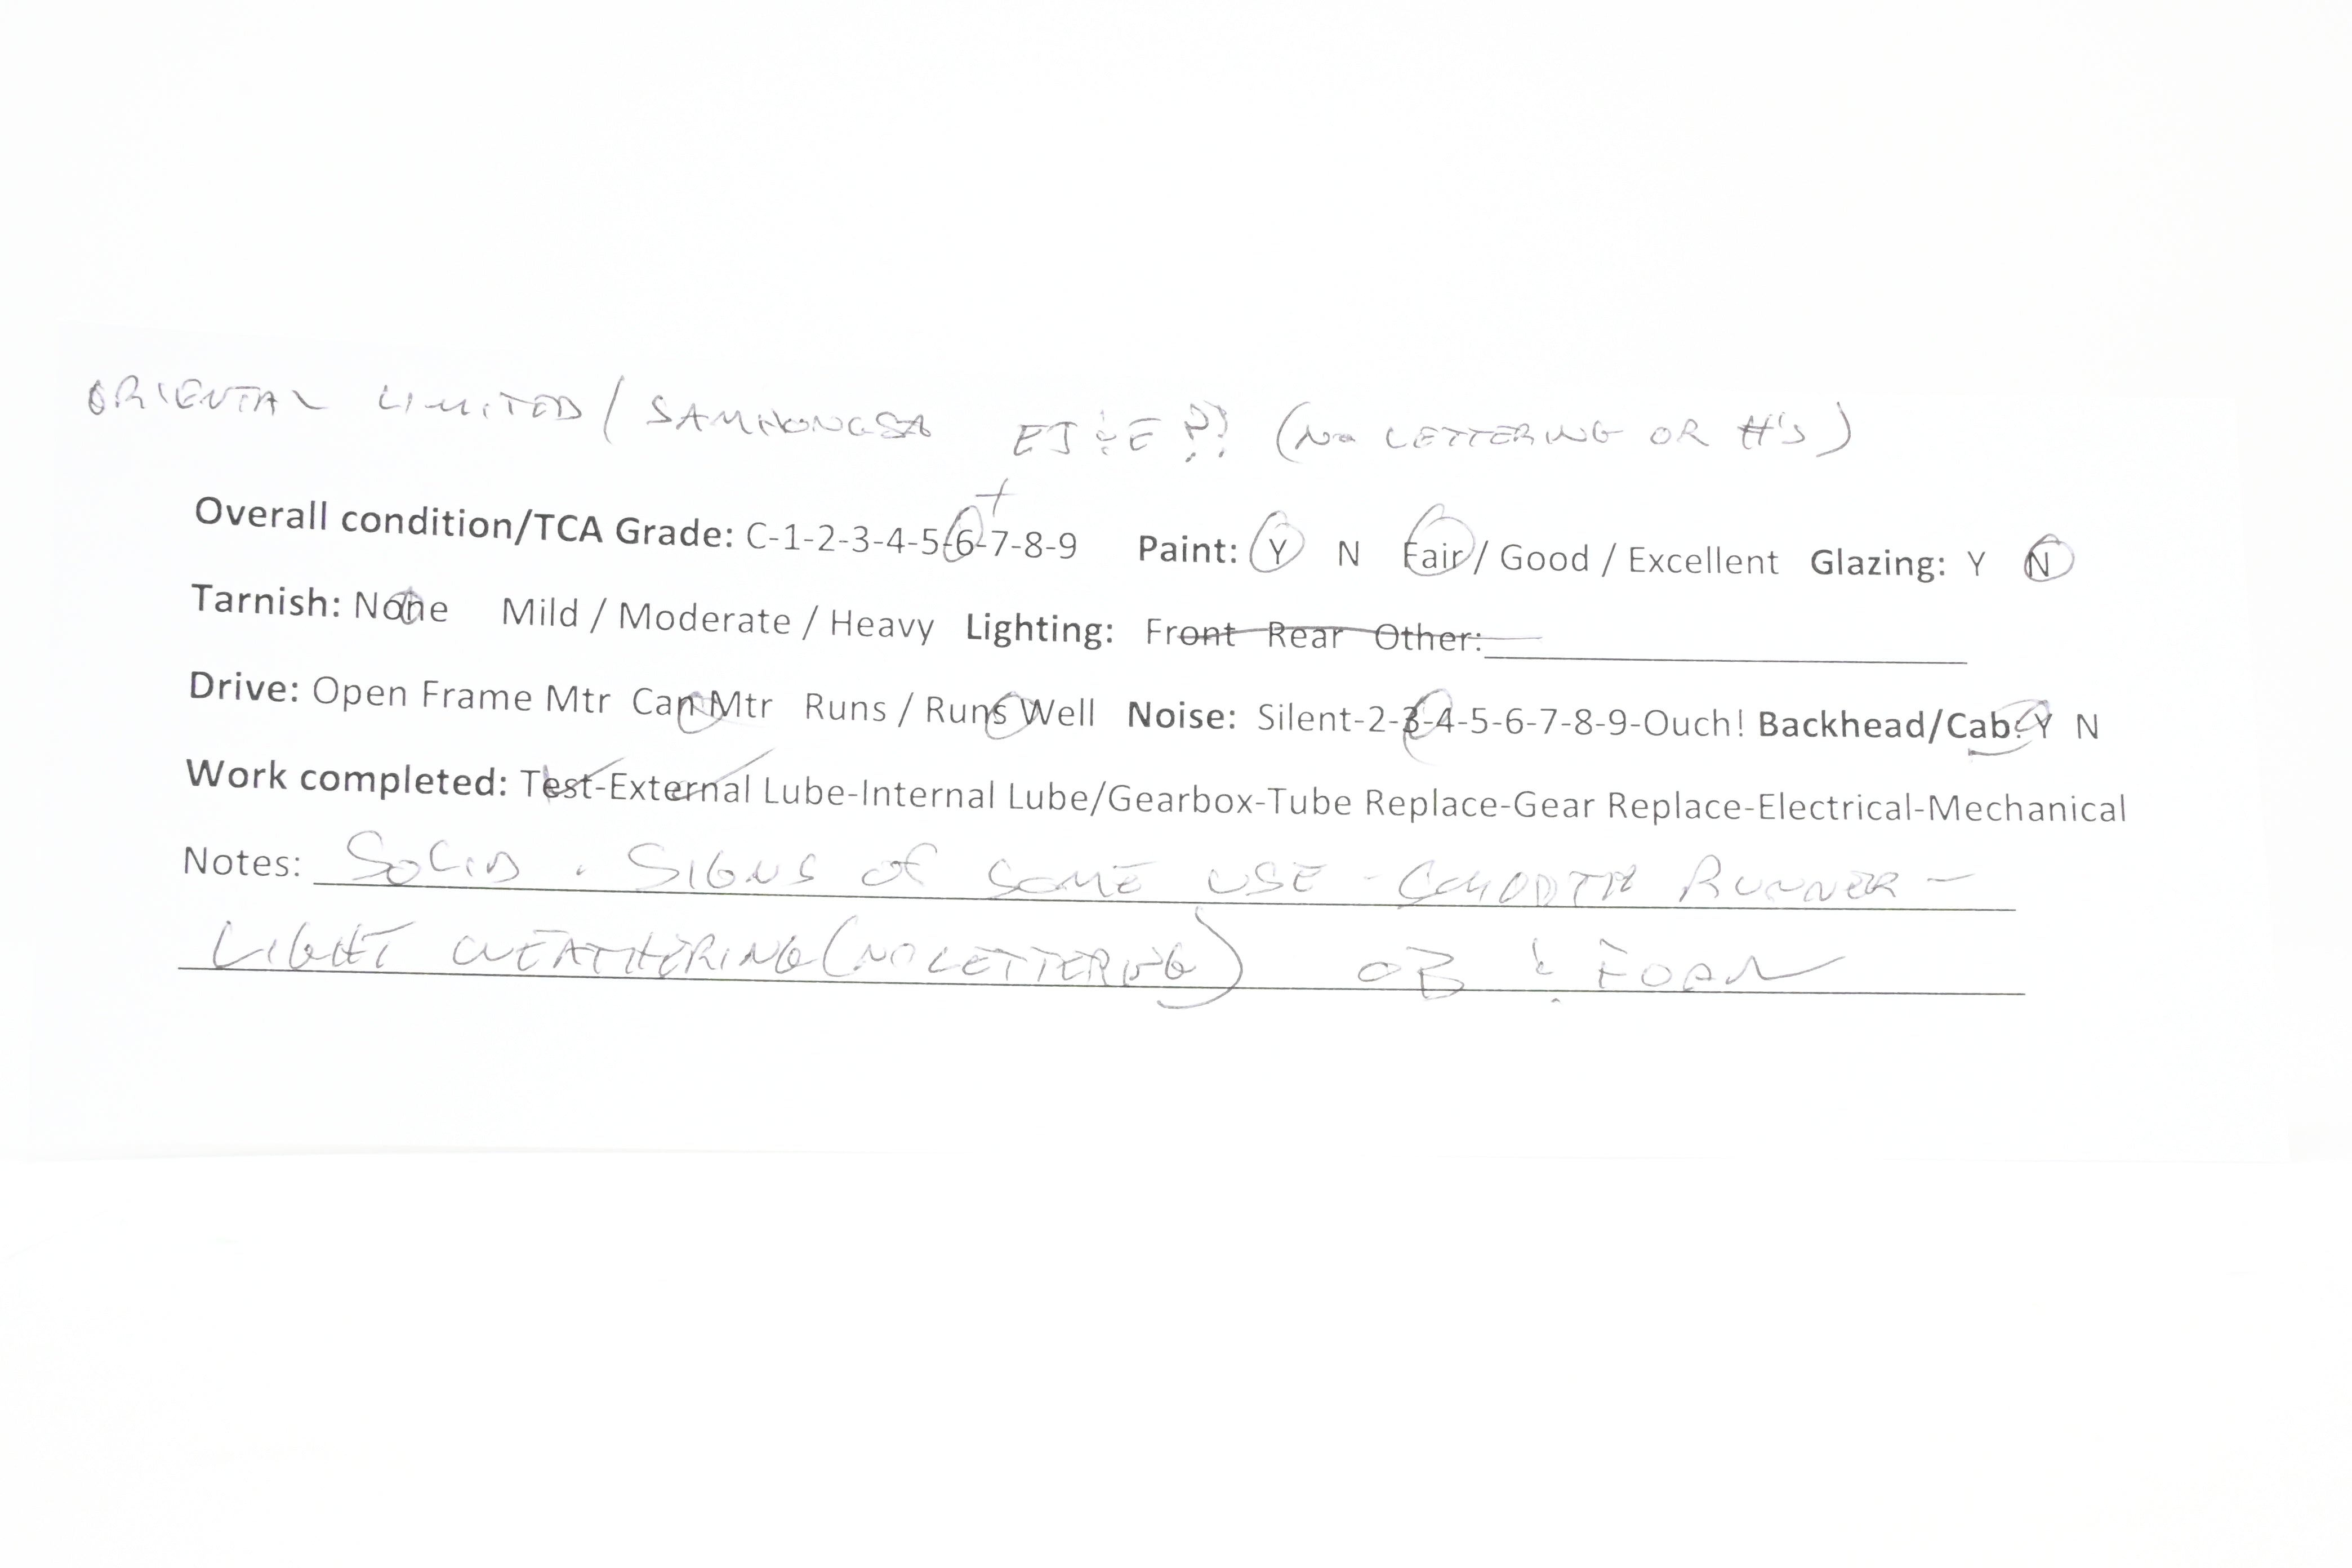 ORIENTAL LIMITED / SAMHONGSA EJ&E ?! (No LETTERING OR #'S)
+
Overall condition/TCA Grade: C-1-2-3-4-5-6-7-8-9 Paint: Y N Fair / Good / Excellent Glazing: Y N
Tarnish: None Mild / Moderate / Heavy Lighting: Front Rear Other:
Drive: Open Frame Mtr Can Mtr Runs / Runs Well Noise: Silent-2-3-4-5-6-7-8-9-Ouch! Backhead/Cab: Y N
Work completed: Test-External Lube-Internal Lube/Gearbox-Tube Replace-Gear Replace-Electrical-Mechanical
Notes: SOLID . SIGNS OF SOME USE - SMOOTH RUNNER -
LIGHT WEATHERING (NO LETTERING) OB & FOAM